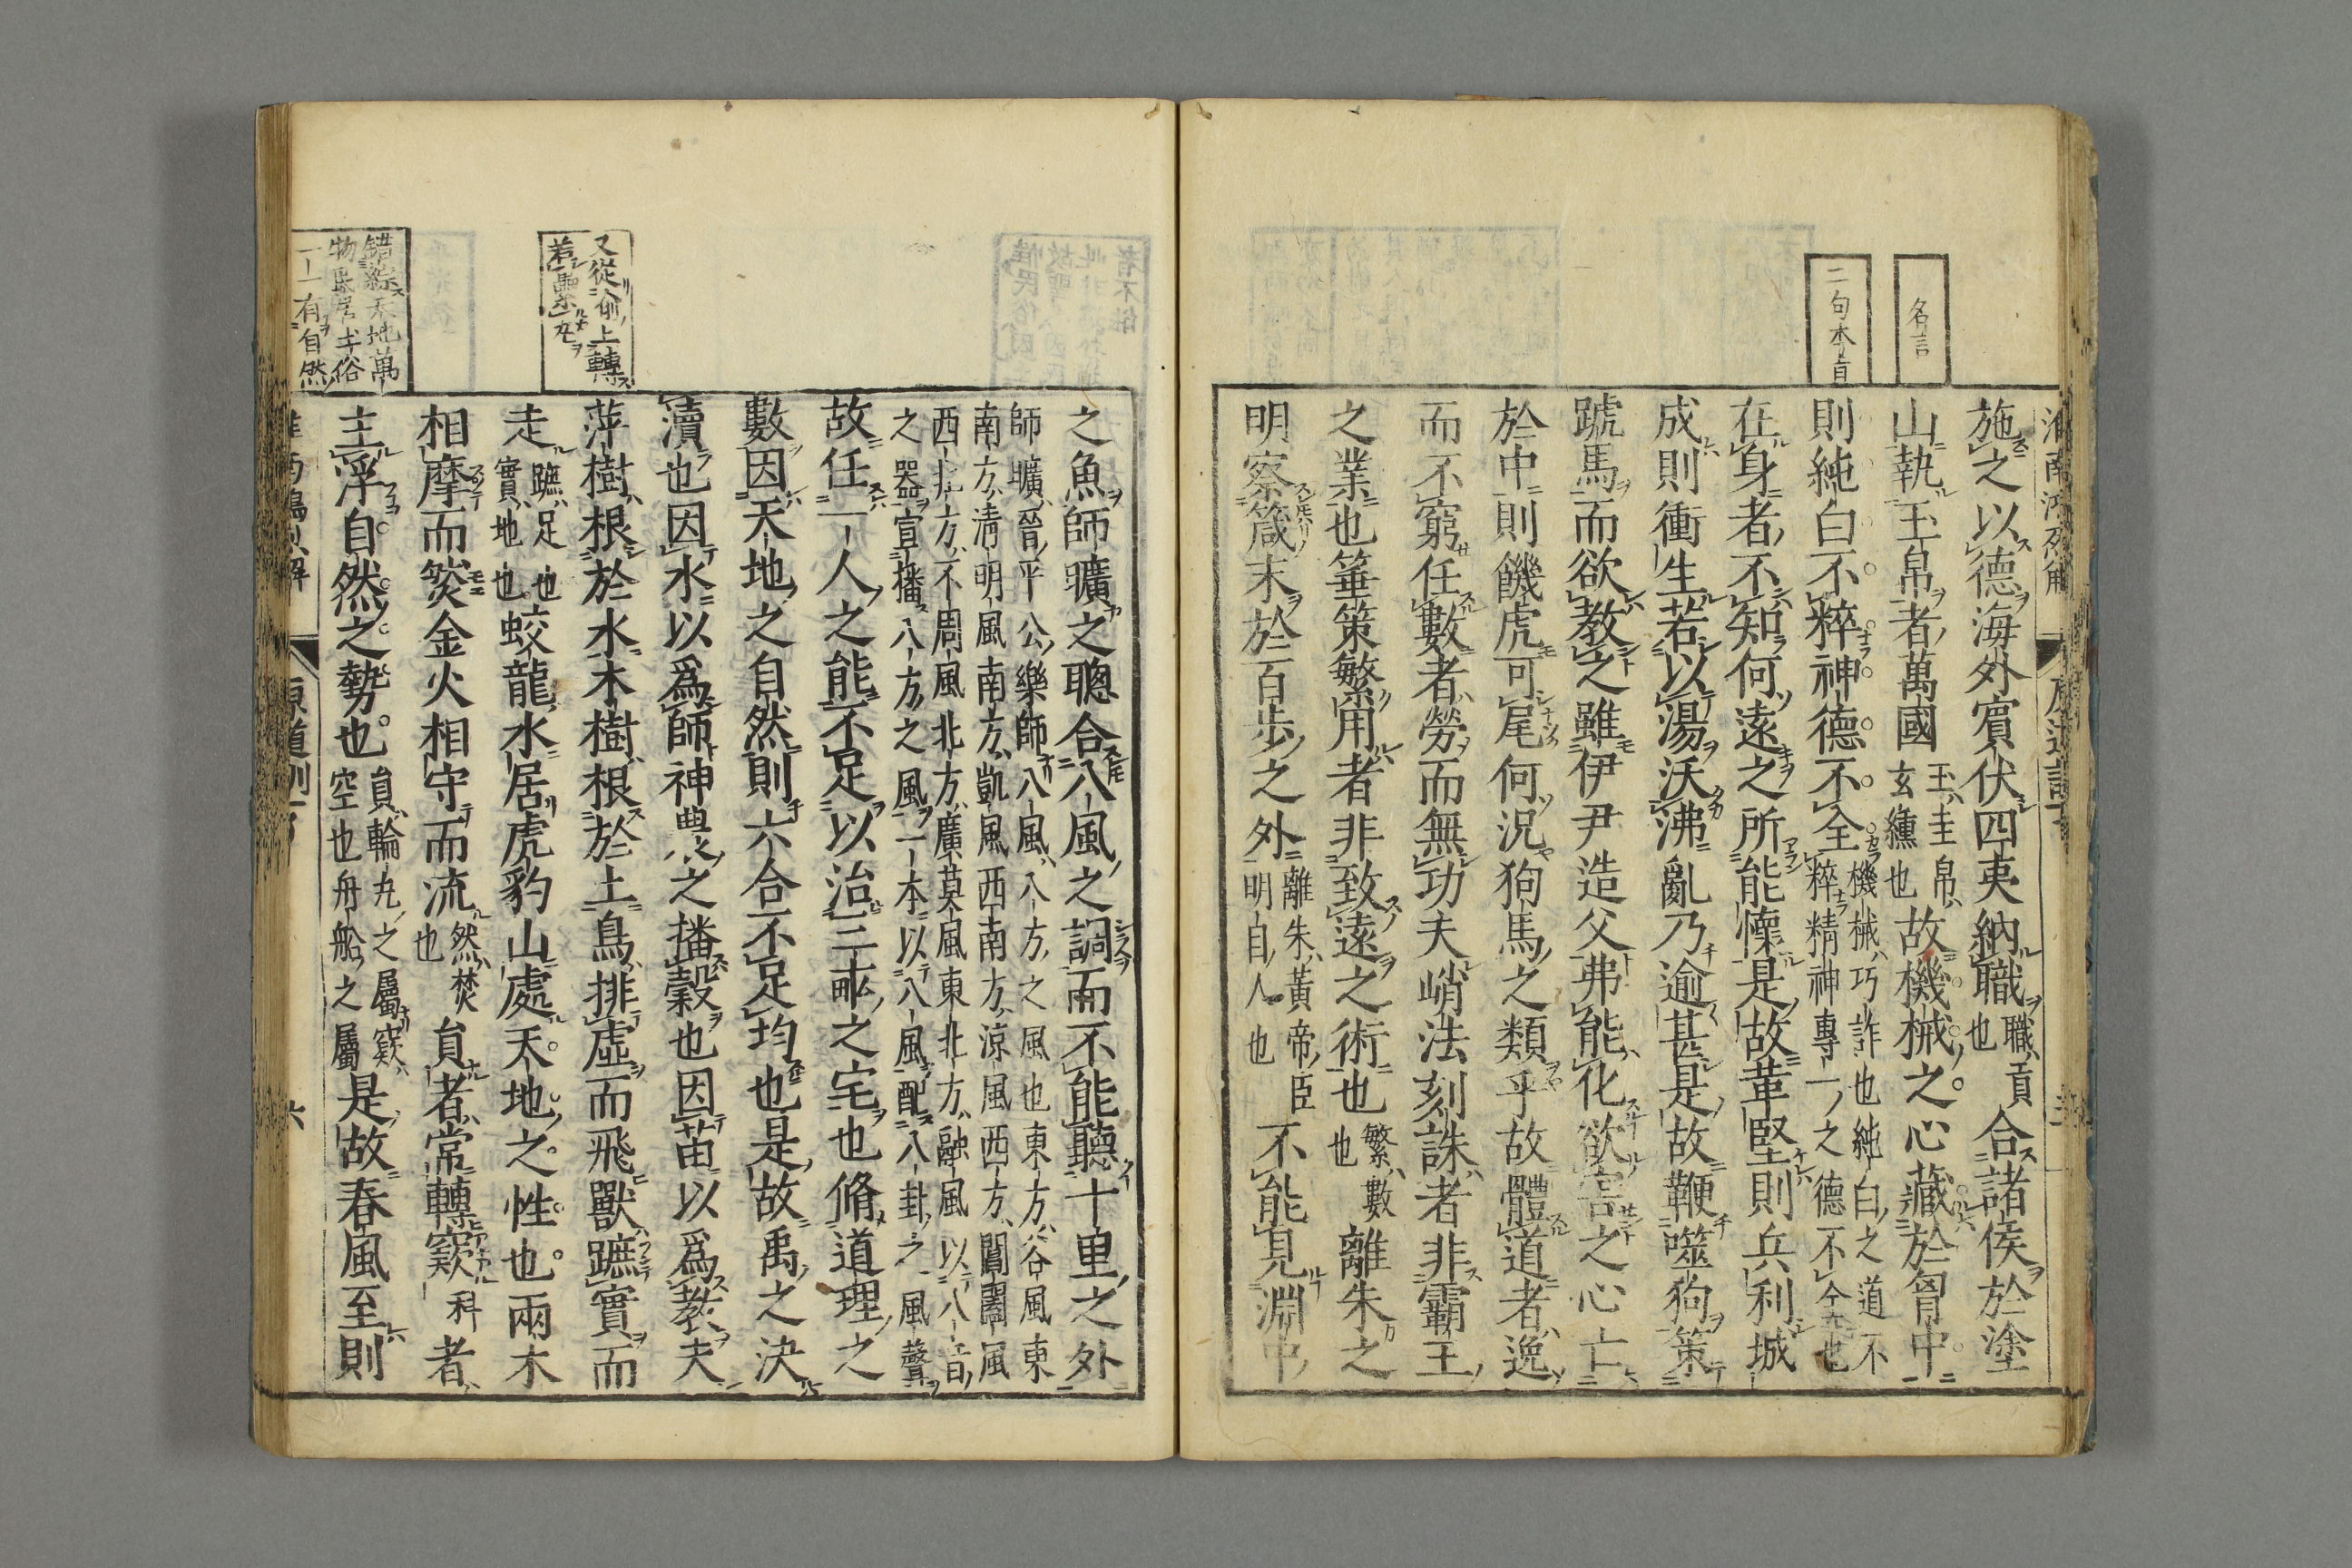 名言
二句本旨
淮南鴻烈解
原道訓
施之以德海外賓伏四夷納職職貢也合諸侯於塗
山執玉帛者萬國玉圭帛玄纁也故機械之心藏於胷中
則純白不粹神德不全機械巧詐也純白之道不粹精神專一之德不全也
在身者不知何遠之所能懷是故革堅則兵利城
成則衝生若以湯沃沸亂乃逾甚是故鞭噬狗策
蹏馬而欲教之雖伊尹造父弗能化欲害之心亡
於中則饑虎可尾何況狗馬之類乎故體道者逸
而不窮任數者勞而無功夫峭法刻誅者非霸王
之業也箠策繁用者非致遠之術也繁數也離朱之
明察箴末於百步之外離朱黃帝臣明目人也不能見淵中
之魚師曠之聰合八風之調而不能聽十里之外
師曠晉平公樂師八風八方之風也東方谷風東
南方淸明風南方凱風西南方涼風西方閶闔風
西北方不周風北方廣莫風東北方融風以八音
之器宣播八方之風一本以八風配八卦之風聲
故任一人之能不足以治三畝之宅也脩道理之
數因天地之自然則六合不足均也是故禹之決
瀆也因水以爲師神農之播穀也因苗以爲教夫
萍樹根於水木樹根於土鳥排虛而飛獸蹠實而
走蹠足也實地也蛟龍水居虎豹山處天地之性也兩木
相摩而然金火相守而流然焚也員者常轉窾科者
主浮自然之勢也員輪丸之屬窾空也舟船之屬是故春風至則
又從偷上轉
若纍丸
錯綜天地萬
物民居土俗
一一有自然
原道訓
六